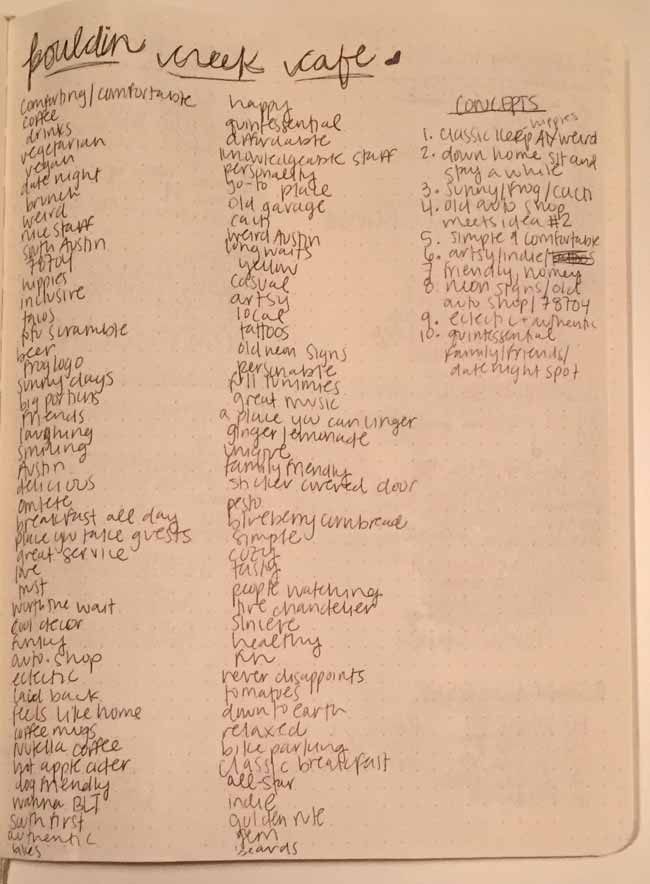 bouldin creek cafe
comforting/comfortable
coffee
drinks
vegetarian
vegan
date night
brunch
weird
nice staff
south Austin
78704
hippies
inclusive
tacos
tofu scramble
beer
frog logo
sunny days
big portions
friends
laughing
smiling
Austin
delicious
omlete
breakfast all day
place you take guests
great service
love
must
worth the wait
cool decor
funky
auto-shop
eclectic
laid back
feels like home
coffee mugs
Nutella coffee
hot apple cider
dog friendly
wanna BLT
south first
authentic
bikes
happy
quintessential
affordable
knowledgeable staff
personality
go-to place
old garage
cacti
weird Austin
long waits
yellow
casual
artsy
local
tattoos
old neon signs
personable
full tummies
great music
a place you can linger
ginger lemonade
unique
family friendly
sticker covered door
pesto
blueberry cornbread
simple
cozy
tasty
people watching
tire chandelier
sincere
healthy
fun
never disappoints
tomatoes
down to earth
relaxed
bike parking
classic breakfast
all-star
indie
golden rule
gem
beards
CONCEPTS
hippies
1. classic keep ATX weird
2. down home sit and
stay a while
3. sunny/frog/cacti
4. old auto shop
meets idea #2
5. simple & comfortable
6. artsy/indie/
7. friendly, homey
8. neon signs/old
auto shop/78704
9. eclectic + authentic
10. quintessential
family/friends/
date night spot